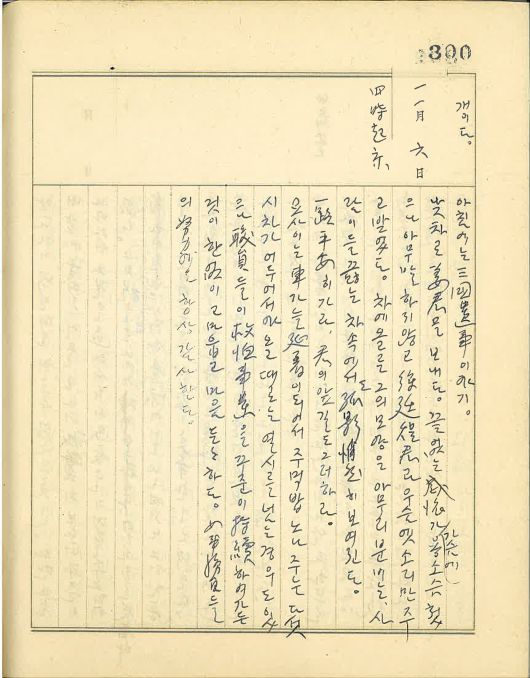 300
개이다.
一一月 六日
四時起床、
아침에는 三國遺事 이야기.
낮차로 姜君을 보내다. 끝없는 感懷가 가슴에 용솟음 쳤
으나 아무말 하지않고 徐廷煌君과 우슨 옛소리만 주
고받었다. 차에 올른 그의 모양은 아무리 분변는, 사
람이 들끓는 차속에서도 孤影悄然히 보여진다.
一路平安히 가라. 君의 앞길도 그러하라.
요사이는 車가 늘 延着이 되어서 주먹밥 노나 주는 다섯
시차가 어두어서야 오는 때도 또는 열시를 넘는 경우도 있
으나 職員들이 救恤事業을 꾸준이 持續하여 가는
것이 한없이 고마웁고 마음 든든하다.
의 努力을 항상 감사한다.